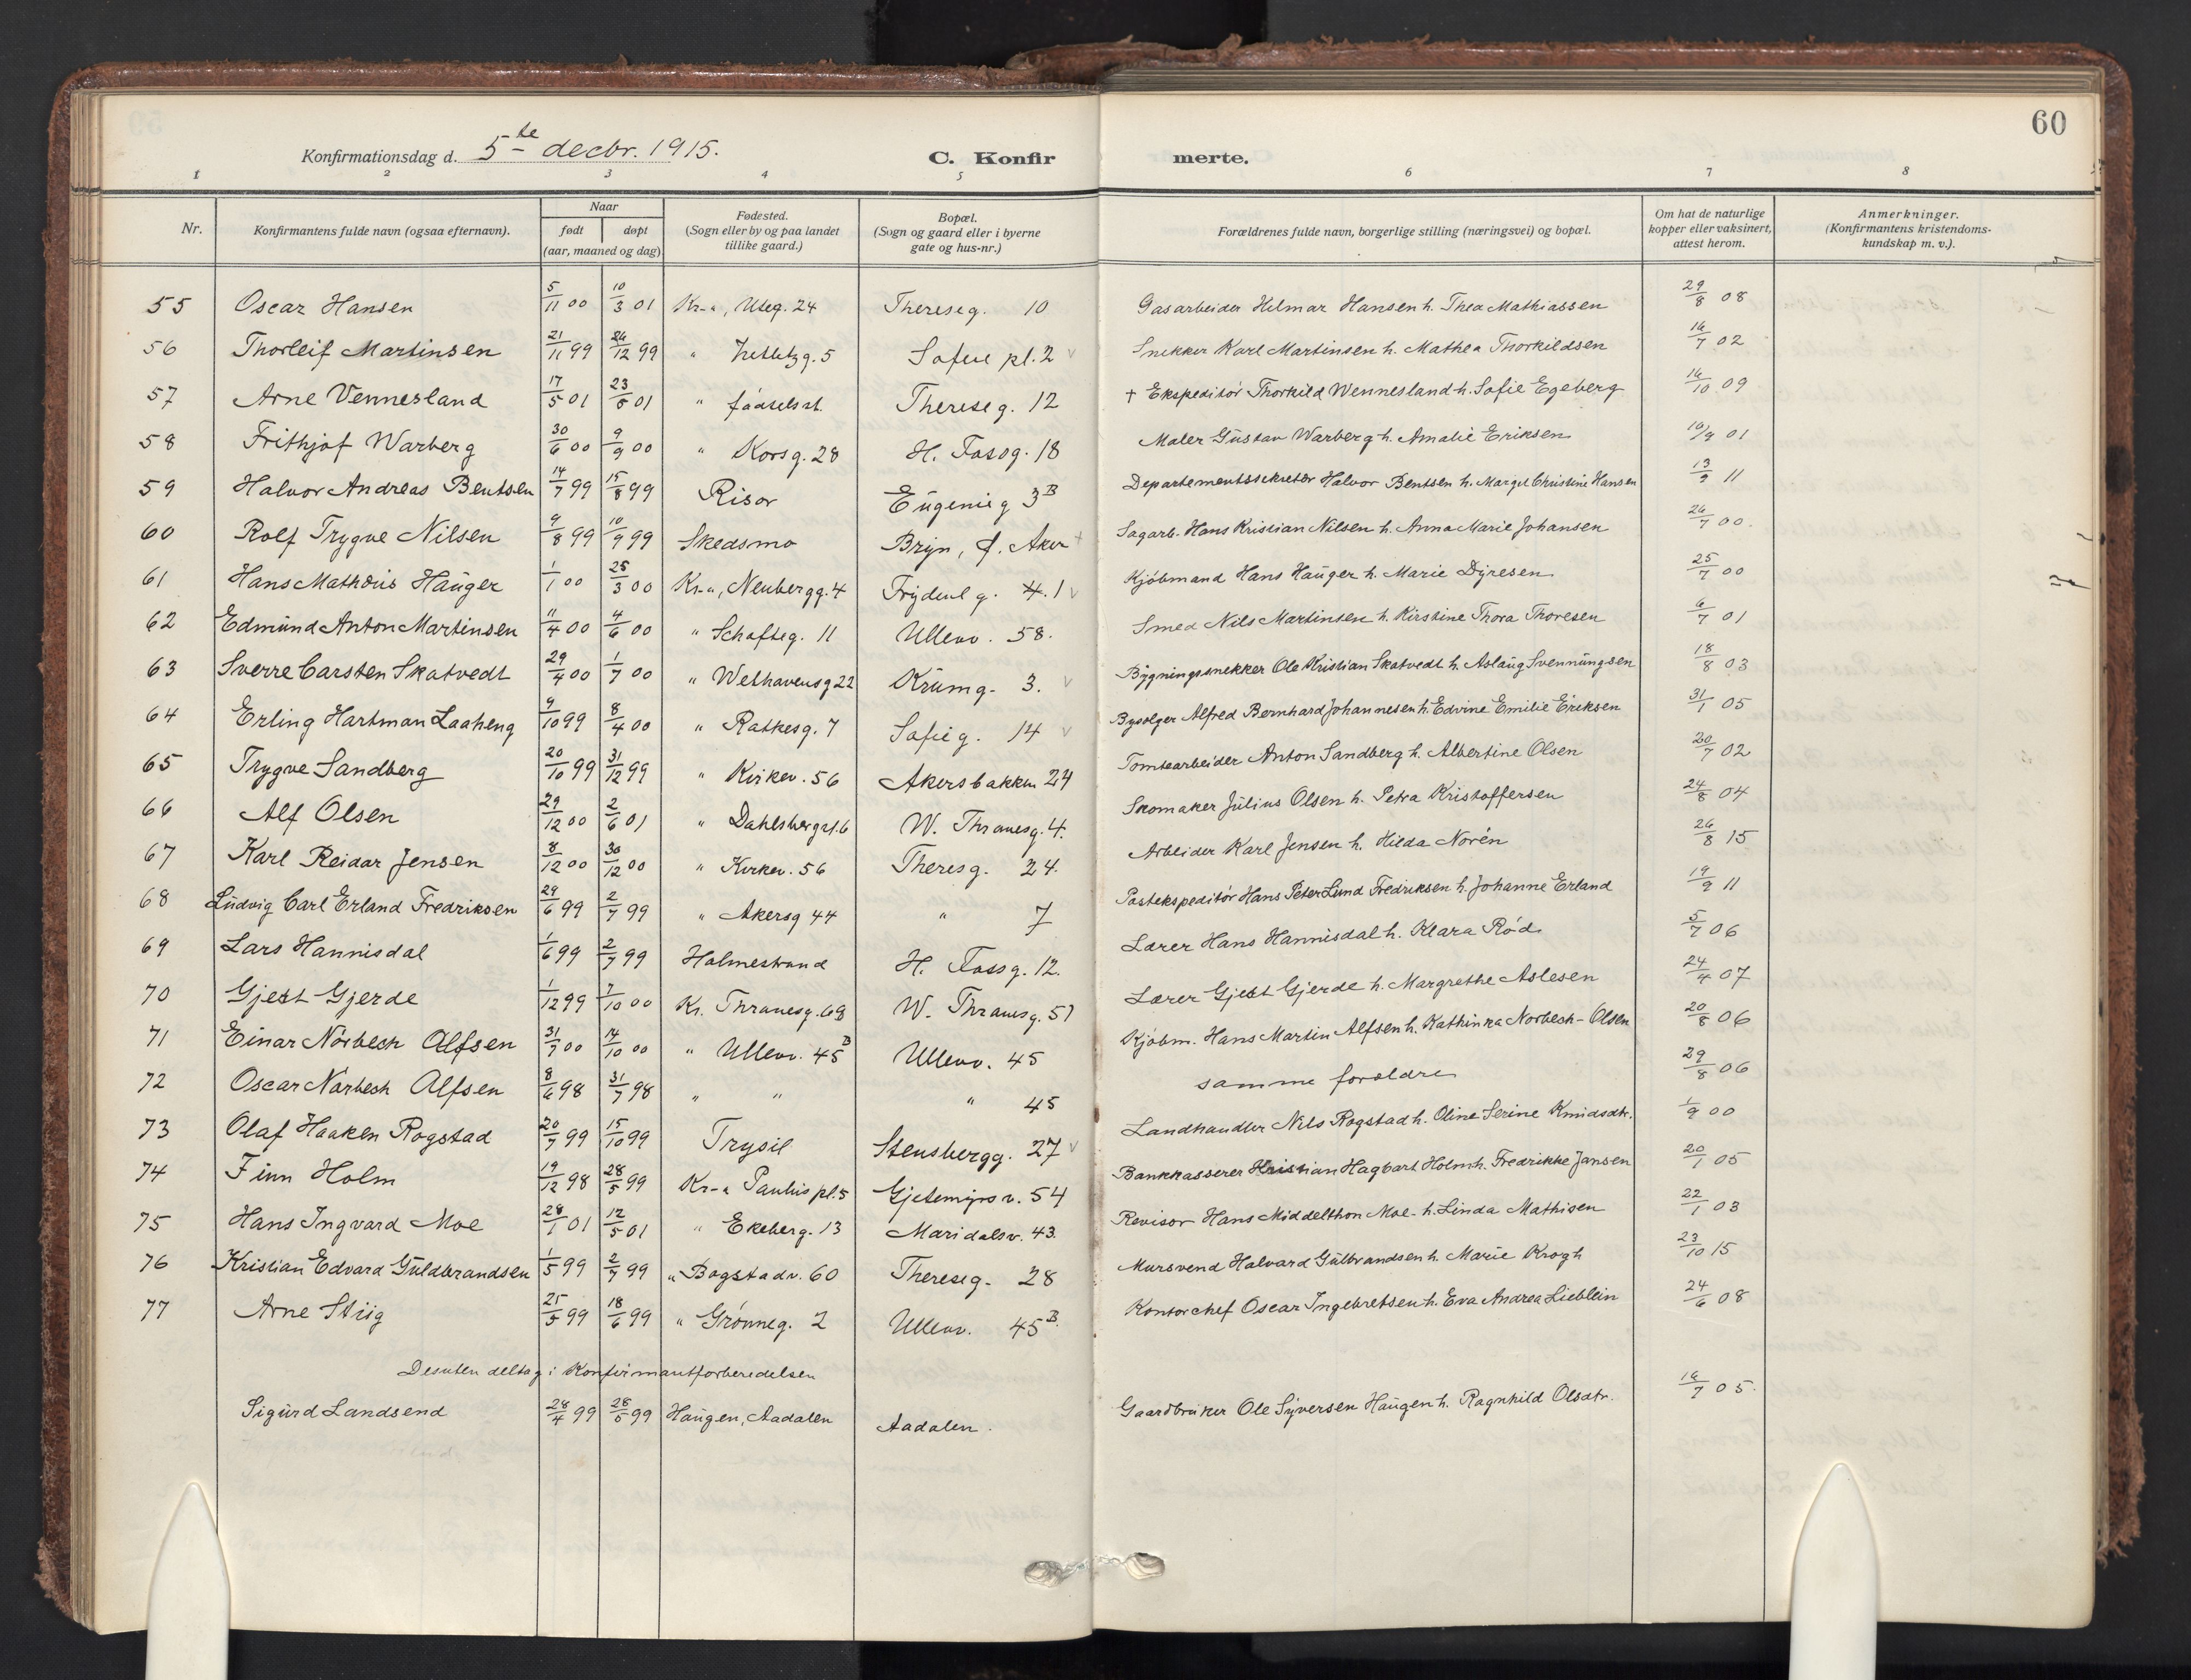 60
Konfirmationsdag d. 5te decbr. 1915. C. Konfir merte.
1 2 3 4 5 6 7 8
Nr. Konfirmantens fulde navn (ogsaa efternavn). Naar født døpt (aar, maaned og dag) Fødested. (Sogn eller by og paa landet tillike gaard.) Bopæl. (Sogn og gaard eller i byerne gate og hus-nr.) Forældrenes fulde navn, borgerlige stilling (næringsvei) og bopæl. Om hat de naturlige kopper eller vaksinert, attest herom. Anmerkninger. (Konfirmantens kristendoms-kundskap m. v.).
55 Oscar Hansen 5/11 00 10/3 01 Kr-a, Uteg. 24 Thereseg. 10 Gasarbeider Hilmar Hansen h. Thea Mathiassen 29/8 08
56 Thorleif Martinsen 21/11 99 26/12 99 " g. 5 Sofie pl. 2 Snekker Karl Martinsen h. Mathea Thorkildsen 16/7 02
57 Arne Vennesland 17/5 01 23/8 01 " fødselsst. Thereseg. 12 † Ekspeditør Thorkild Wennesland h. Sofie Egeberg 16/10 09
58 Frithjof Warberg 30/6 00 9/9 00 " Korsg. 28 H. Fossg. 18 Maler Gustav Warberg h. Amalie Eriksen 10/9 01
59 Halvor Andreas Bentsen 14/7 99 15/8 99 Risør Eugenieg 3B Departementssekretær Halvor Bentsen h. Margit Christine Hansen 13/9 11
60 Rolf Trygve Nilsen 9/8 99 10/9 99 Skedsmo Bryn, Ø. Aker Sagarb. Hans Kristian Nilsen h. Anna Marie Johansen 26/7 00.
61 Hans Mathæus Hauger 1/1 00 25/3 00 Kr-a, Neubergg. 4 Frydenl g. 4. 1 Kjøbmand Hans Hauger h. Marie Dyresen 25/7 00
62 Edmund Anton Martinsen 11/4 00 4/6 00 " Schafteg. 11 Ullevv. 58. Smed Nils Martinsen h. Kirstine Thora Thoresen 6/7 01
63 Sverre Carsten Skatvedt 29/4 00 1/7 00 " Welhavensg 22 Krumg. 3. Bygningssnekker Ole Kristian Skatvedt h. Aslaug Svennungsen 18/8 03
64 Erling Hartman Laaheng 9/10 99 8/4 00 " Ratkesg. 7 Sofieg. 14 Byselger Alfred Bernhard Johannesen h. Edvine Emilie Eriksen 31/1 05
65 Trygve Sandberg 20/10 99 31/12 99 " Kirkev. 56 Akersbakken 24 Tomtearbeider Anton Sandberg h. Albertine Olsen 30/7 02
66 Alf Olsen 29/12 00 2/6 01 " Dahlsbergst. 6 W. Thranesg. 4. Skomaker Julius Olsen h. Petra Kristoffersen 24/8 04
67 Karl Reidar Jensen 8/12 00 30/12 00 " Kirkev. 56 Theresg. 24. Arbeider Karl Jensen h. Hilda Norén 26/8 15
68 Ludvig Carl Erland Fredriksen 29/6 99 2/7 99 " Akersg 44 " 7 Postekspeditør Hans Peter Lund Fredriksen h. Johanne Erland 19/9 11
69 Lars Hannisdal 1/6 99 2/7 99 Holmestrand H. Fossg. 12. Lærer Hans Hannisdal h. Klara Rød 5/7 06
70 Gjert Gjerde 1/12 99 7/10 00 Kr. Thranesg. 68 W. Thranesg. 51 Lærer Gjert Gjerde h. Margrethe Aslesen 24/4 07
71 Einar Norbech Alfsen 31/7 00 14/10 00 " Ullevv. 45B Ullevv. 45 Kjøbm. Hans Martin Alfsen h. Kathinka Norbech-Olsen 20/8 06
72 Oscar Norbech Alfsen 8/6 98 31/7 98 " " " 45 samme forældre 29/8 06
73 Olaf Haaken Rogstad 20/7 99 15/10 99 Trysil Stensbergg. 27 Landhandler Nils Rogstad h. Oline Serine Knudsdtr. 1/9 00
74 Finn Holm 19/12 98 28/5 99 Kr-a Paulus pl. 5 Gjetemyrsv. 54 Bankkasserer Kristian Hagbart Holm h. Fredrikke Jansen 20/1 05
75 Hans Ingvard Moe 28/1 01 12/5 01 " Ekeberg. 13 Maridalsv. 43. Revisor Hans Middelthon Moe h. Linda Mathisen 22/1 03
76 Kristian Edvard Guldbrandsen 1/5 99 2/7 99 " Bogstadv. 60 Thereseg. 28 Mursvend Halvard Gulbrandsen h. Marie Krogh 23/10 15
77 Arne Stiig 25/5 99 18/6 99 " Grønneg. 2 Ullevv. 45B. Kontorchef Oscar Ingebretsen h. Eva Andrea Lieblein 24/6 08
Desuten deltag i Konfirmantforberedelsen
Sigurd Landsend 28/4 99 28/5 99 Haugen, Aadalen Aadalen. Gaardbruker Ole Syversen Haugen h. Ragnhild Olsdtr. 16/7 05.